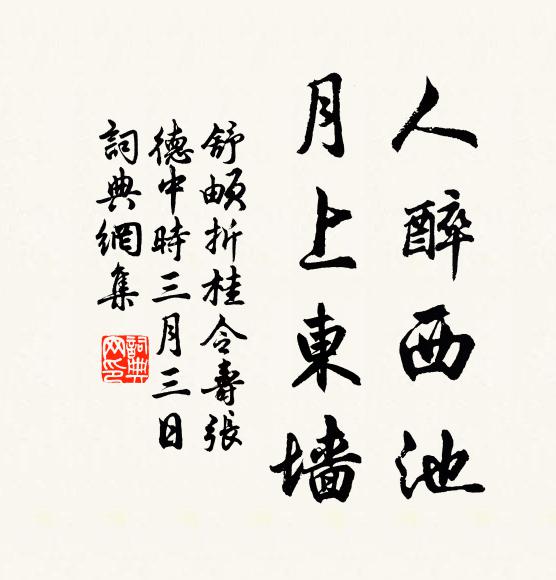 人醉西池
月上東墻
舒頔折桂令壽張
德中時三月三日
詞典網集
詞典網印